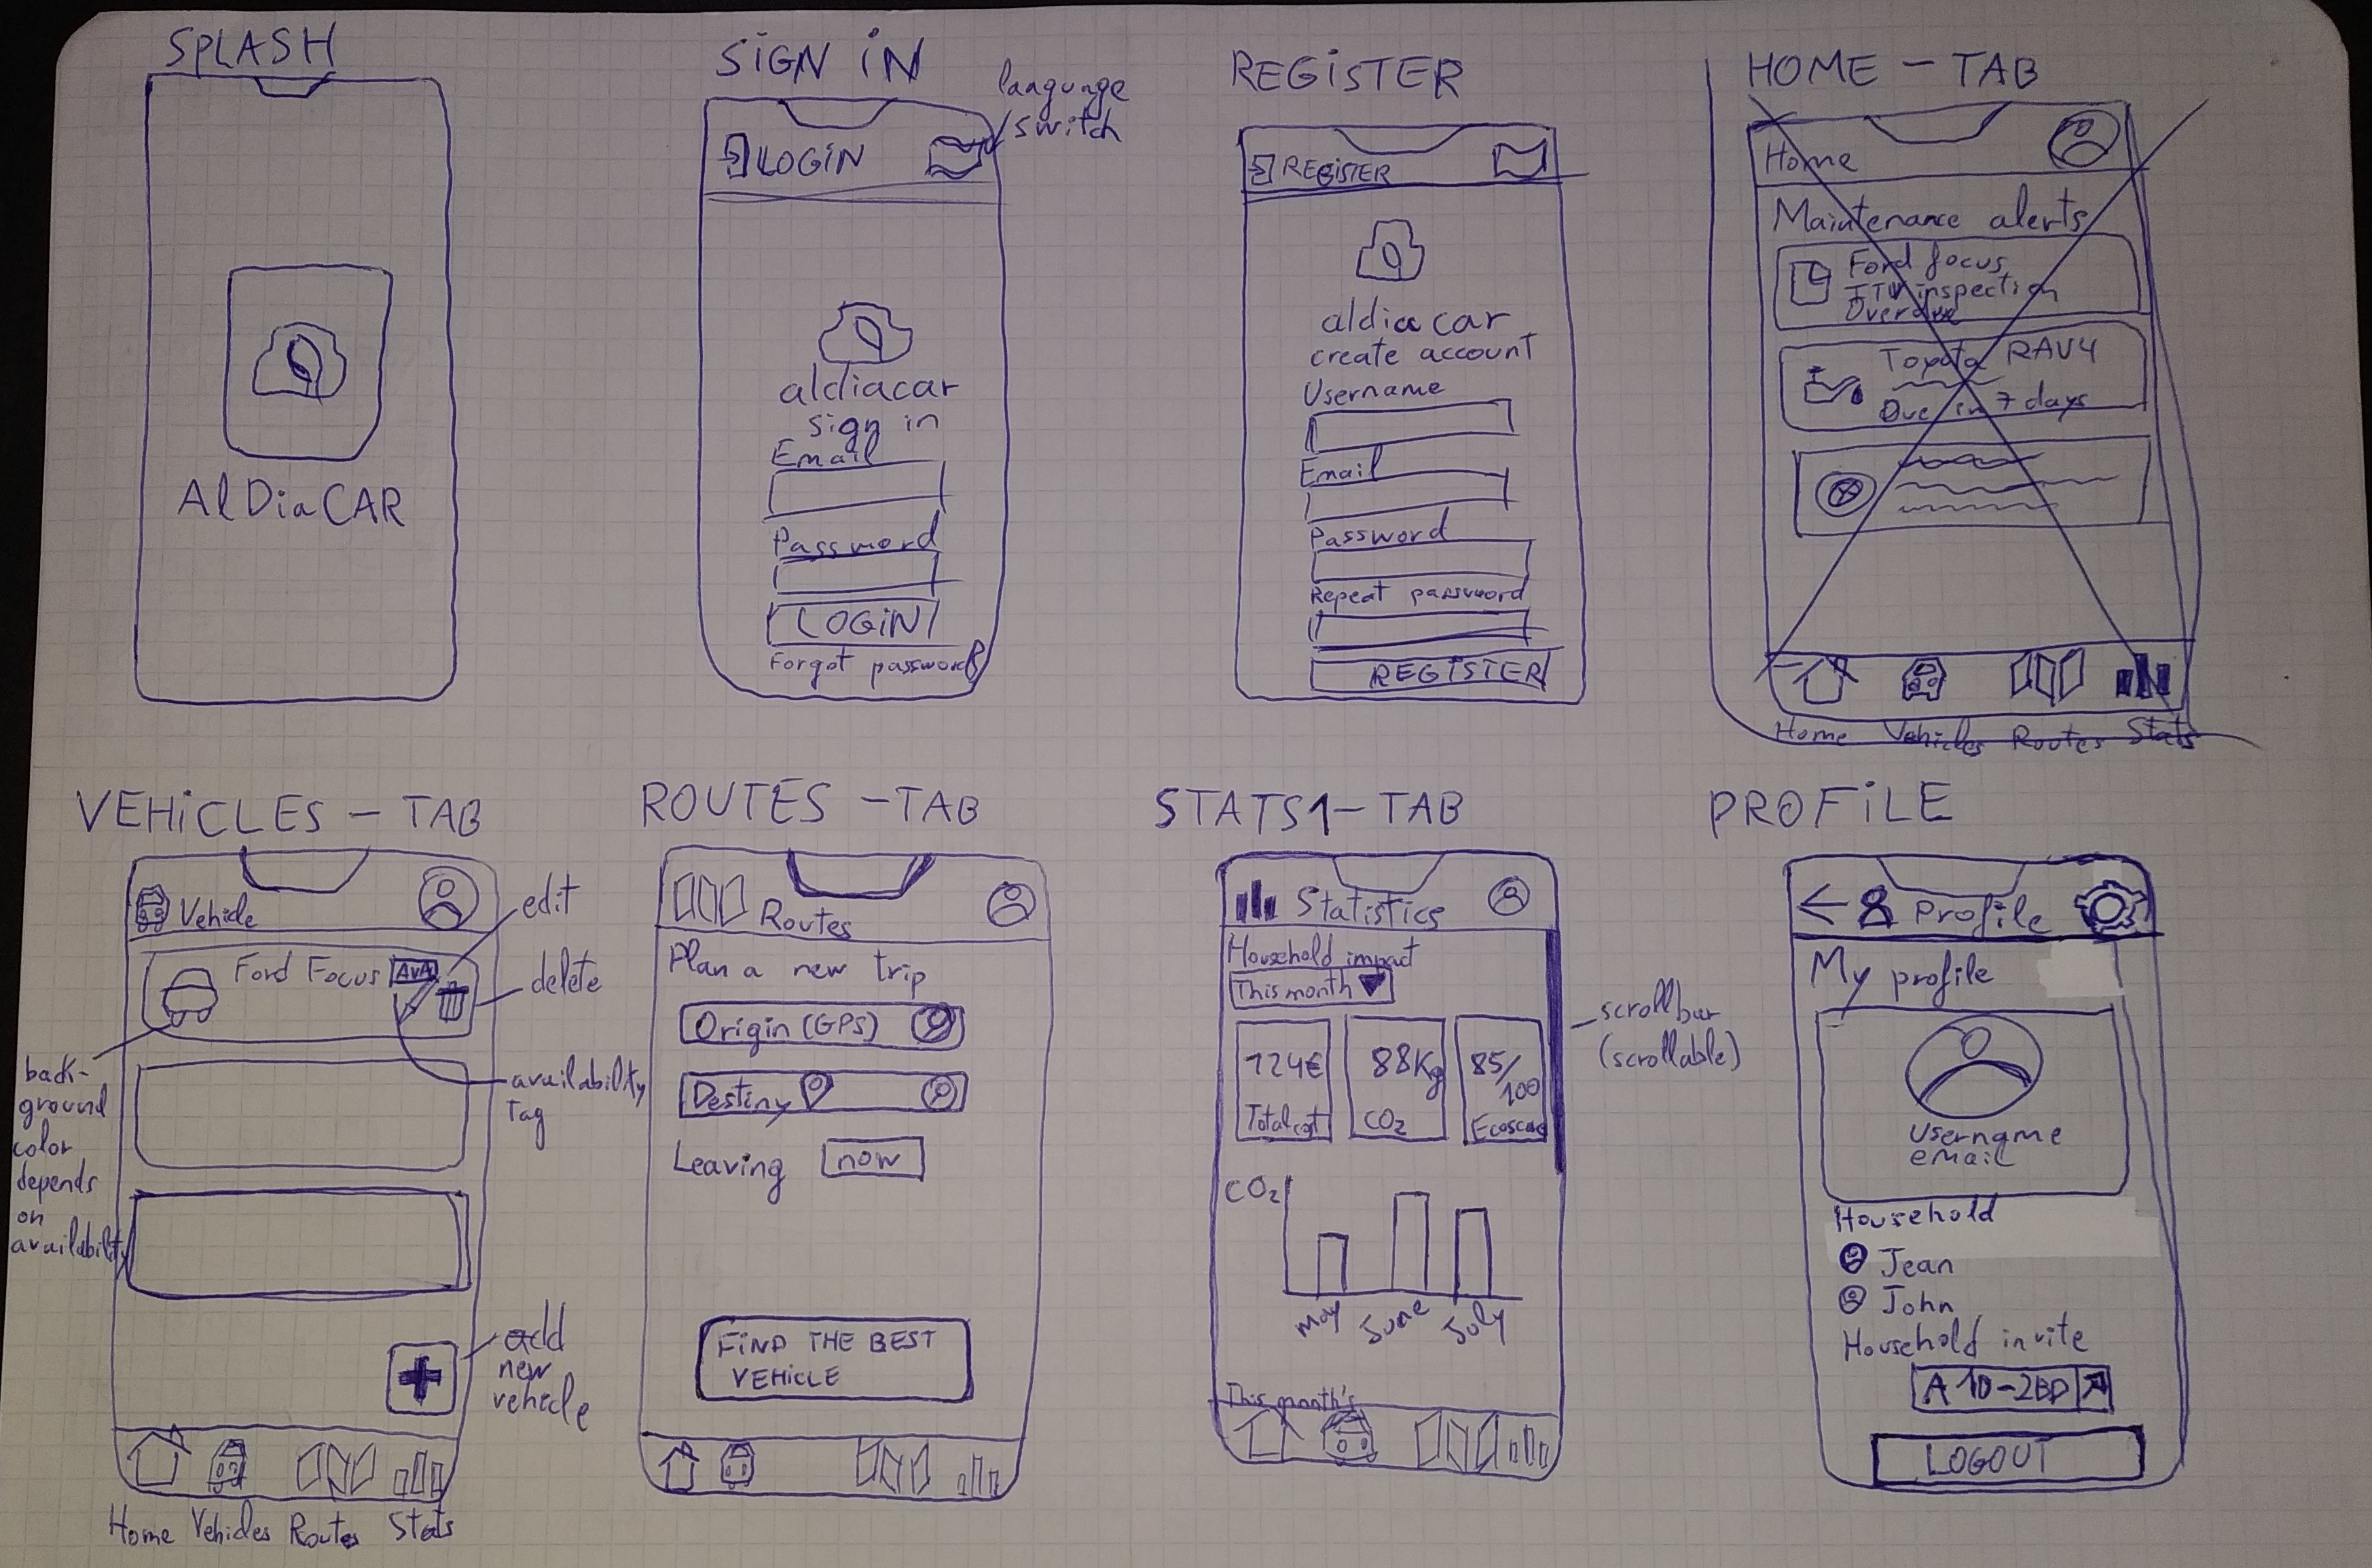 SPLASH
AlDiaCAR
SiGN iN
language
switch
LOGiN
aldiacar
sign in
Email
Password
LOGiN
Forgot password
REGiSTER
REGiSTER
aldia car
create account
Username
Email
Password
Repeat password
REGiSTER
HOME - TAB
Home
Maintenance alerts
Ford focus
ITV inspection
Overdue
Toyota RAV4
Due in 7 days
Home Vehicles Routes Stats
VEHiCLES - TAB
Vehicle
edit
Ford Focus AVA
delete
back-
ground
color
depends
on
availability
availability
tag
add
new
vehicle
Home Vehicles Routes Stats
ROUTES - TAB
Routes
Plan a new trip
Origin (GPS)
Destiny
Leaving now
FiND THE BEST
VEHiCLE
STATS1 - TAB
Statistics
Household impact
This month
124€
Total cost
88Kg
CO2
85/100
Ecoscore
scrollbar
(scrollable)
CO2
May June July
This month's
PROFiLE
Profile
My profile
Username
email
Household
Jean
John
Household invite
LOGOUT